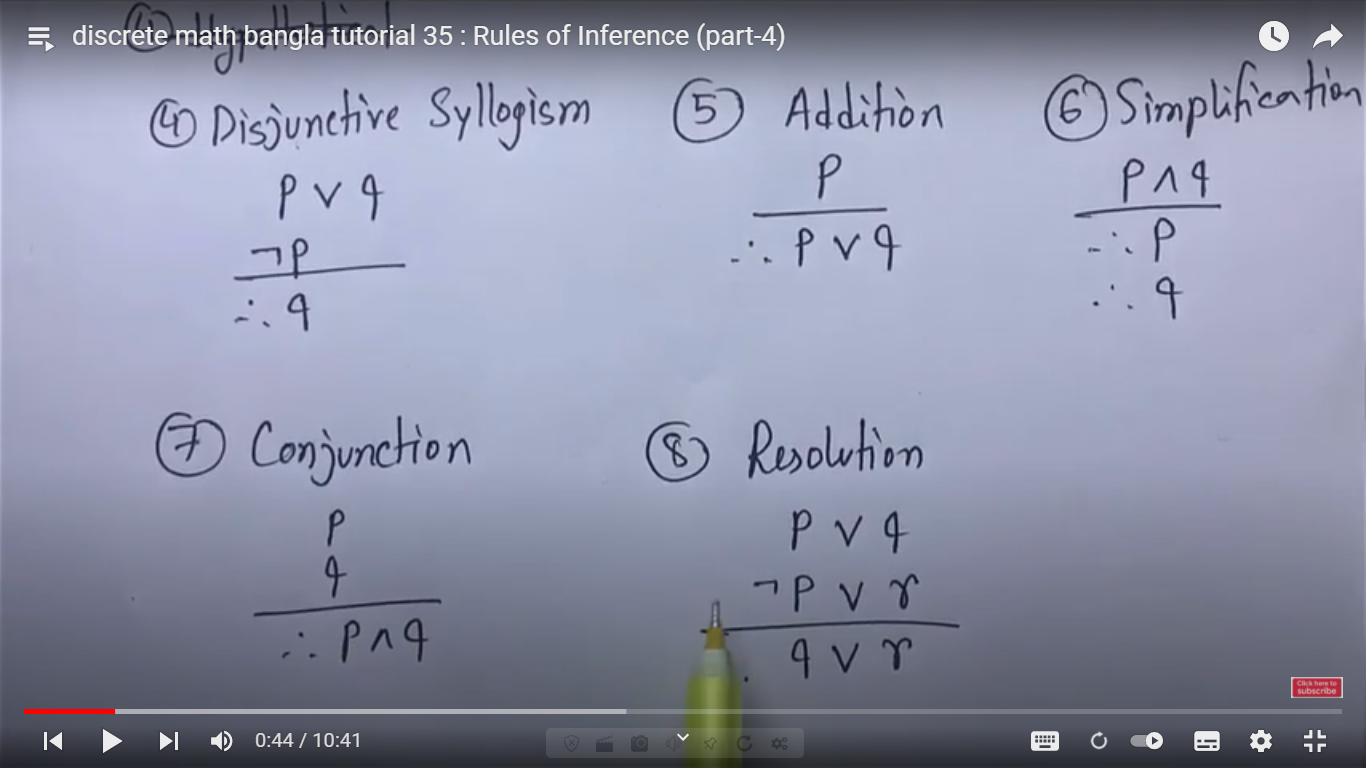 ④ Hypothetical
discrete math bangla tutorial 35 : Rules of Inference (part-4)
④ Disjunctive Syllogism
p ∨ q
¬p
∴ q
⑤ Addition
p
∴ p ∨ q
⑥ Simplification
p ∧ q
∴ p
∴ q
⑦ Conjunction
p
q
∴ p ∧ q
⑧ Resolution
p ∨ q
¬p ∨ r
q ∨ r
Click here to
subscribe
0:44 / 10:41